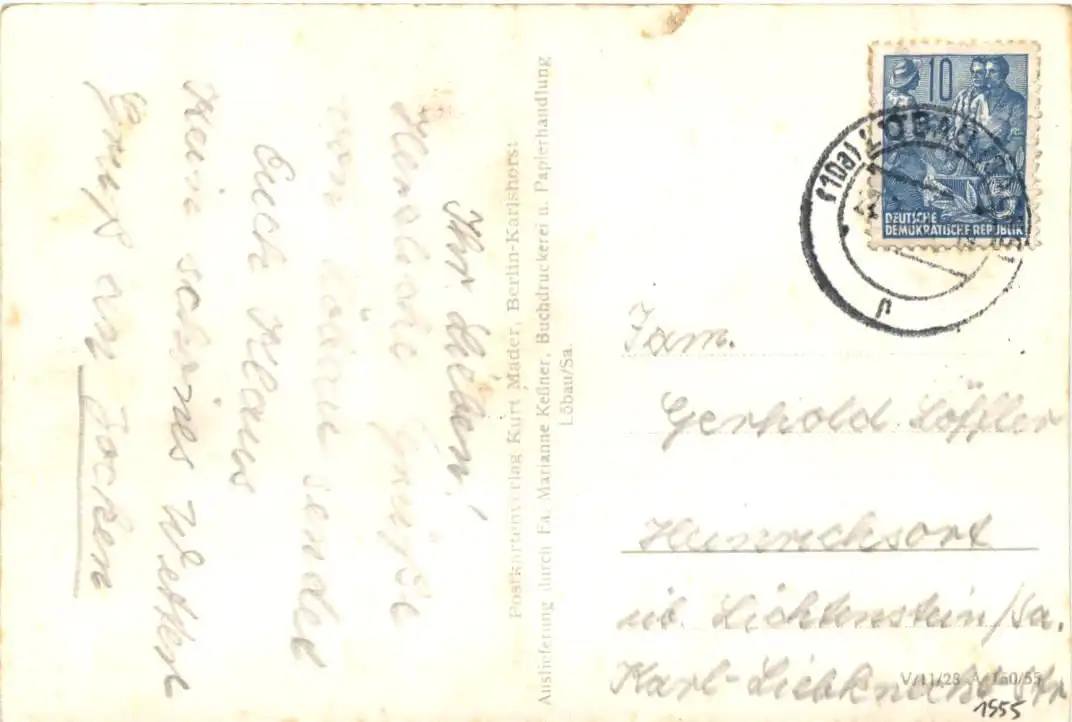 Ihr Lieben!
Herzliche Grüße
von Löbau sendet
Euch Klaus
Kein schönes Wetter
Gruß an Jochen
Postkartenverlag Kurt Mader, Berlin-Karlshorst
Auslieferung durch Fa. Marianne Keßner, Buchdruckerei u. Papierhandlung
Löbau/Sa.
10
DEUTSCHE
DEMOKRATISCHE REPUBLIK
(10a) LÖBAU
u
Fam.
Gerhold Löffler
Heinrichsort
üb. Lichtenstein/Sa.
Karl-Liebknecht-Str
V/11/28 A 160/55
1955